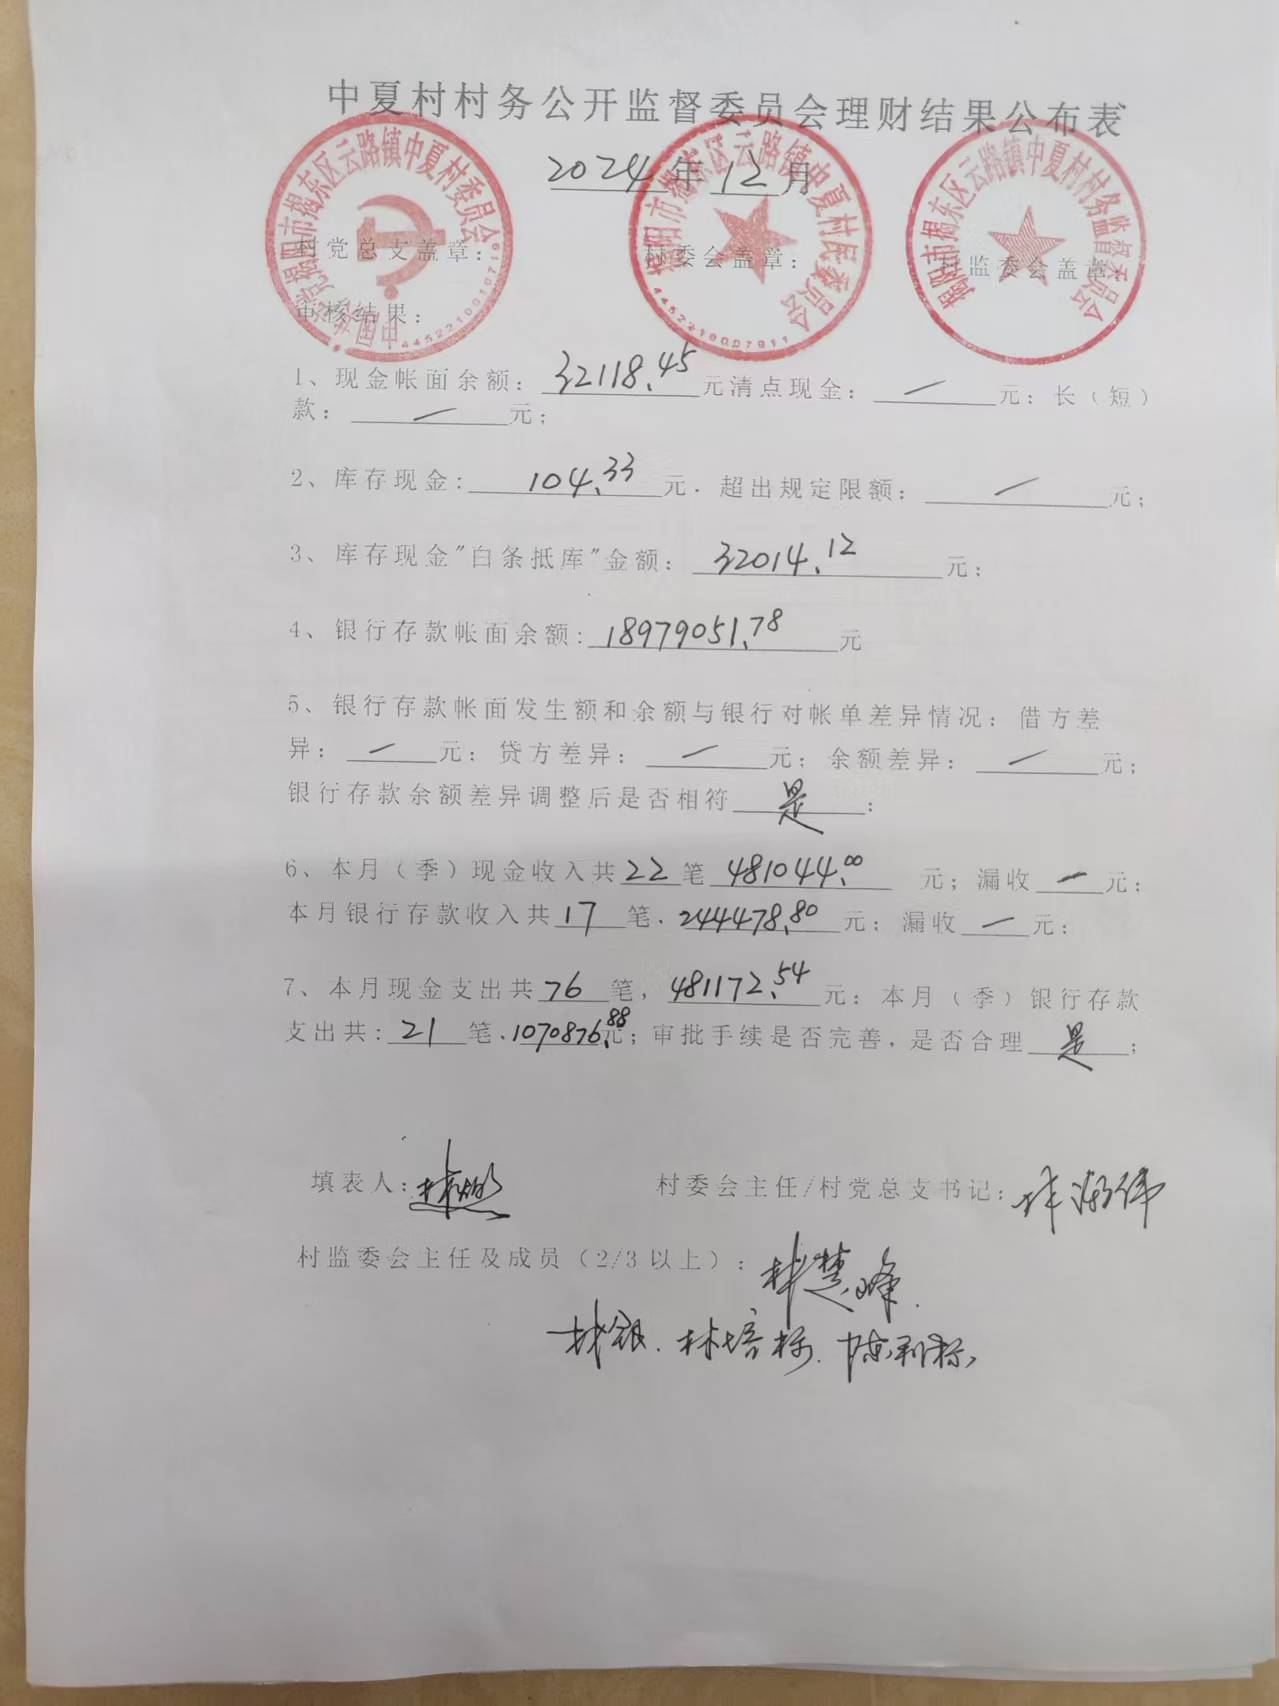 中夏村村务公开监督委员会理财结果公布表
2024年12月
村党总支盖章：
村委会盖章：
村监委会盖章：
揭阳市揭东区云路镇中夏村民委员会
揭阳市揭东区云路镇中夏村村务监督委员会
审核结果：
1、现金帐面余额：32118.45元清点现金：一元；长（短）
款：一元；
2、库存现金：104.33元．超出规定限额：一元；
3、库存现金"白条抵库"金额：32014.12元；
4、银行存款帐面余额：18979051.78元
5、银行存款帐面发生额和余额与银行对帐单差异情况：借方差
异：一元；贷方差异：一元；余额差异：一元；
银行存款余额差异调整后是否相符是；
6、本月（季）现金收入共22笔481044.00元；漏收一元；
本月银行存款收入共17笔．244478.80元；漏收一元；
7、本月现金支出共76笔，481172.54元；本月（季）银行存款
支出共：21笔．1070876.88元；审批手续是否完善．是否合理是；
填表人：
村委会主任/村党总支书记：
村监委会主任及成员（2/3以上）：林慧峰．
林银．林培标．陈利标